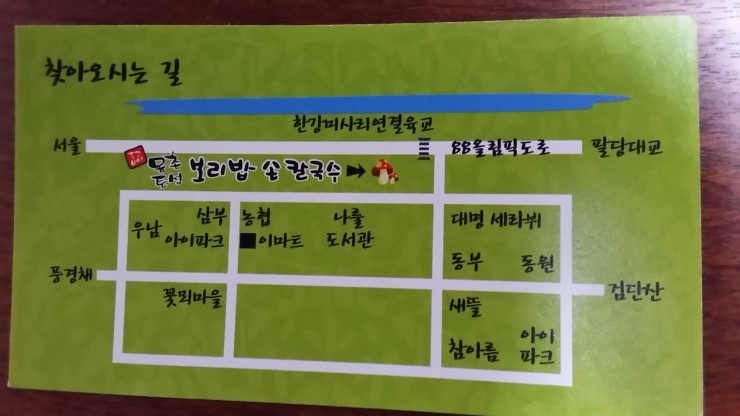 찾아오시는 길
한강미사리연결육교
서울
88올림픽도로
팔당대교
토선
보리밥 손 칼국수
우남
삼부
아이파크
농협
이마트
나룰
도서관
대명 세라뷔
동부
동원
풍경채
꽃뫼마을
검단산
새뜰
참아름
아이
파크